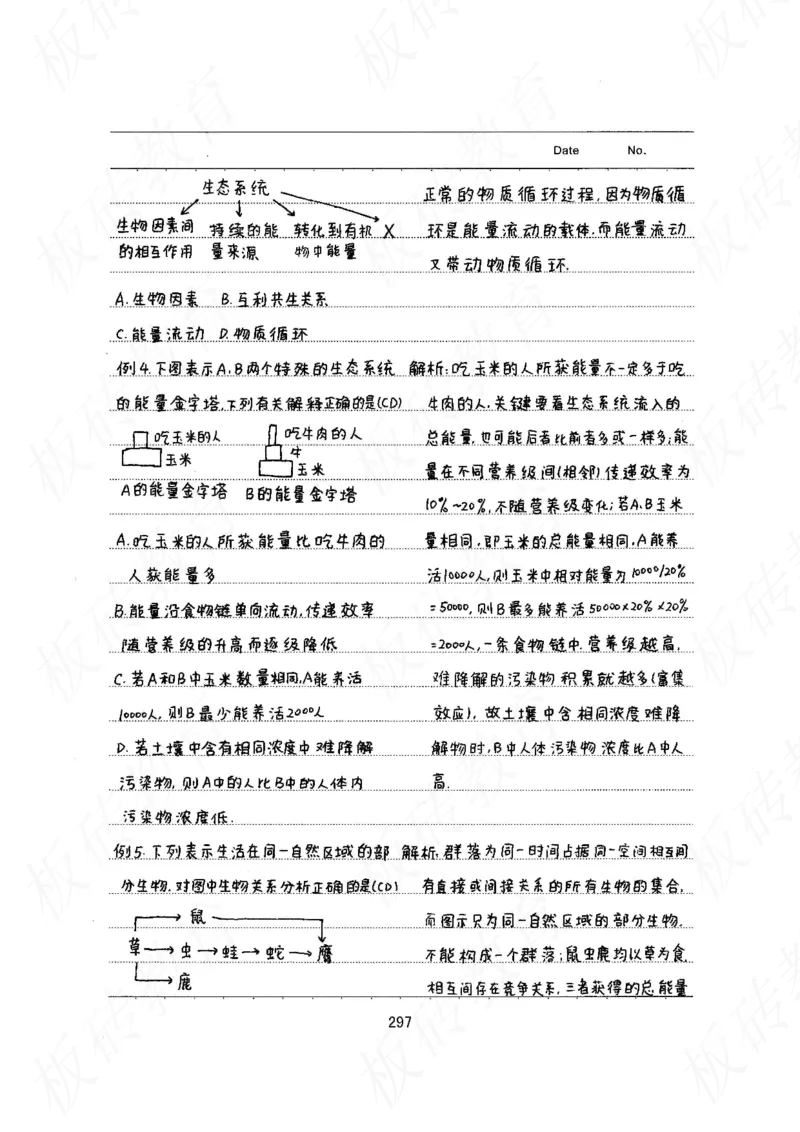 Date No.
生态系统
生物因素间 持续的能 转化到有机 X
的相互作用 量来源 物中能量
A.生物因素 B.互利共生关系
C.能量流动 D.物质循环
正常的物质循环过程,因为物质循
环是能量流动的载体.而能量流动
又带动物质循环.
例4.下图表示A,B两个特殊的生态系统
的能量金字塔,下列有关解释正确的是(CD)
吃玉米的人
玉米
A的能量金字塔
吃牛肉的人
牛
玉米
B的能量金字塔
A.吃玉米的人所获能量比吃牛肉的
人获能量多
B.能量沿食物链单向流动,传递效率
随营养级的升高而逐级降低
C.若A和B中玉米数量相同,A能养活
10000人,则B最少能养活2000人
D.若土壤中含有相同浓度中难降解
污染物,则A中的人比B中的人体内
污染物浓度低.
解析:吃玉米的人所获能量不一定多于吃
牛肉的人.关键要看生态系统流入的
总能量,也可能后者比前者多或一样多;能
量在不同营养级间(相邻)传递效率为
10%~20%,不随营养级变化;若A、B玉米
量相同,即玉米的总能量相同,A能养
活10000人,则玉米中相对能量为10000/20%
=50000,则B最多能养活50000×20%×20%
=2000人,一条食物链中.营养级越高,
难降解的污染物积累就越多(富集
效应),故土壤中含相同浓度难降
解物时,B中人体污染物浓度比A中人
高.
例5.下列表示生活在同一自然区域的部
分生物.对图中生物关系分析正确的是(CD)
鼠
草→虫→蛙→蛇→鹰
鹿
解析:群落为同一时间占据同一空间相互间
有直接或间接关系的所有生物的集合,
而图示只为同一自然区域的部分生物.
不能构成一个群落;鼠虫鹿均以草为食,
相互间存在竞争关系,三者获得的总能量
297
板砖教育